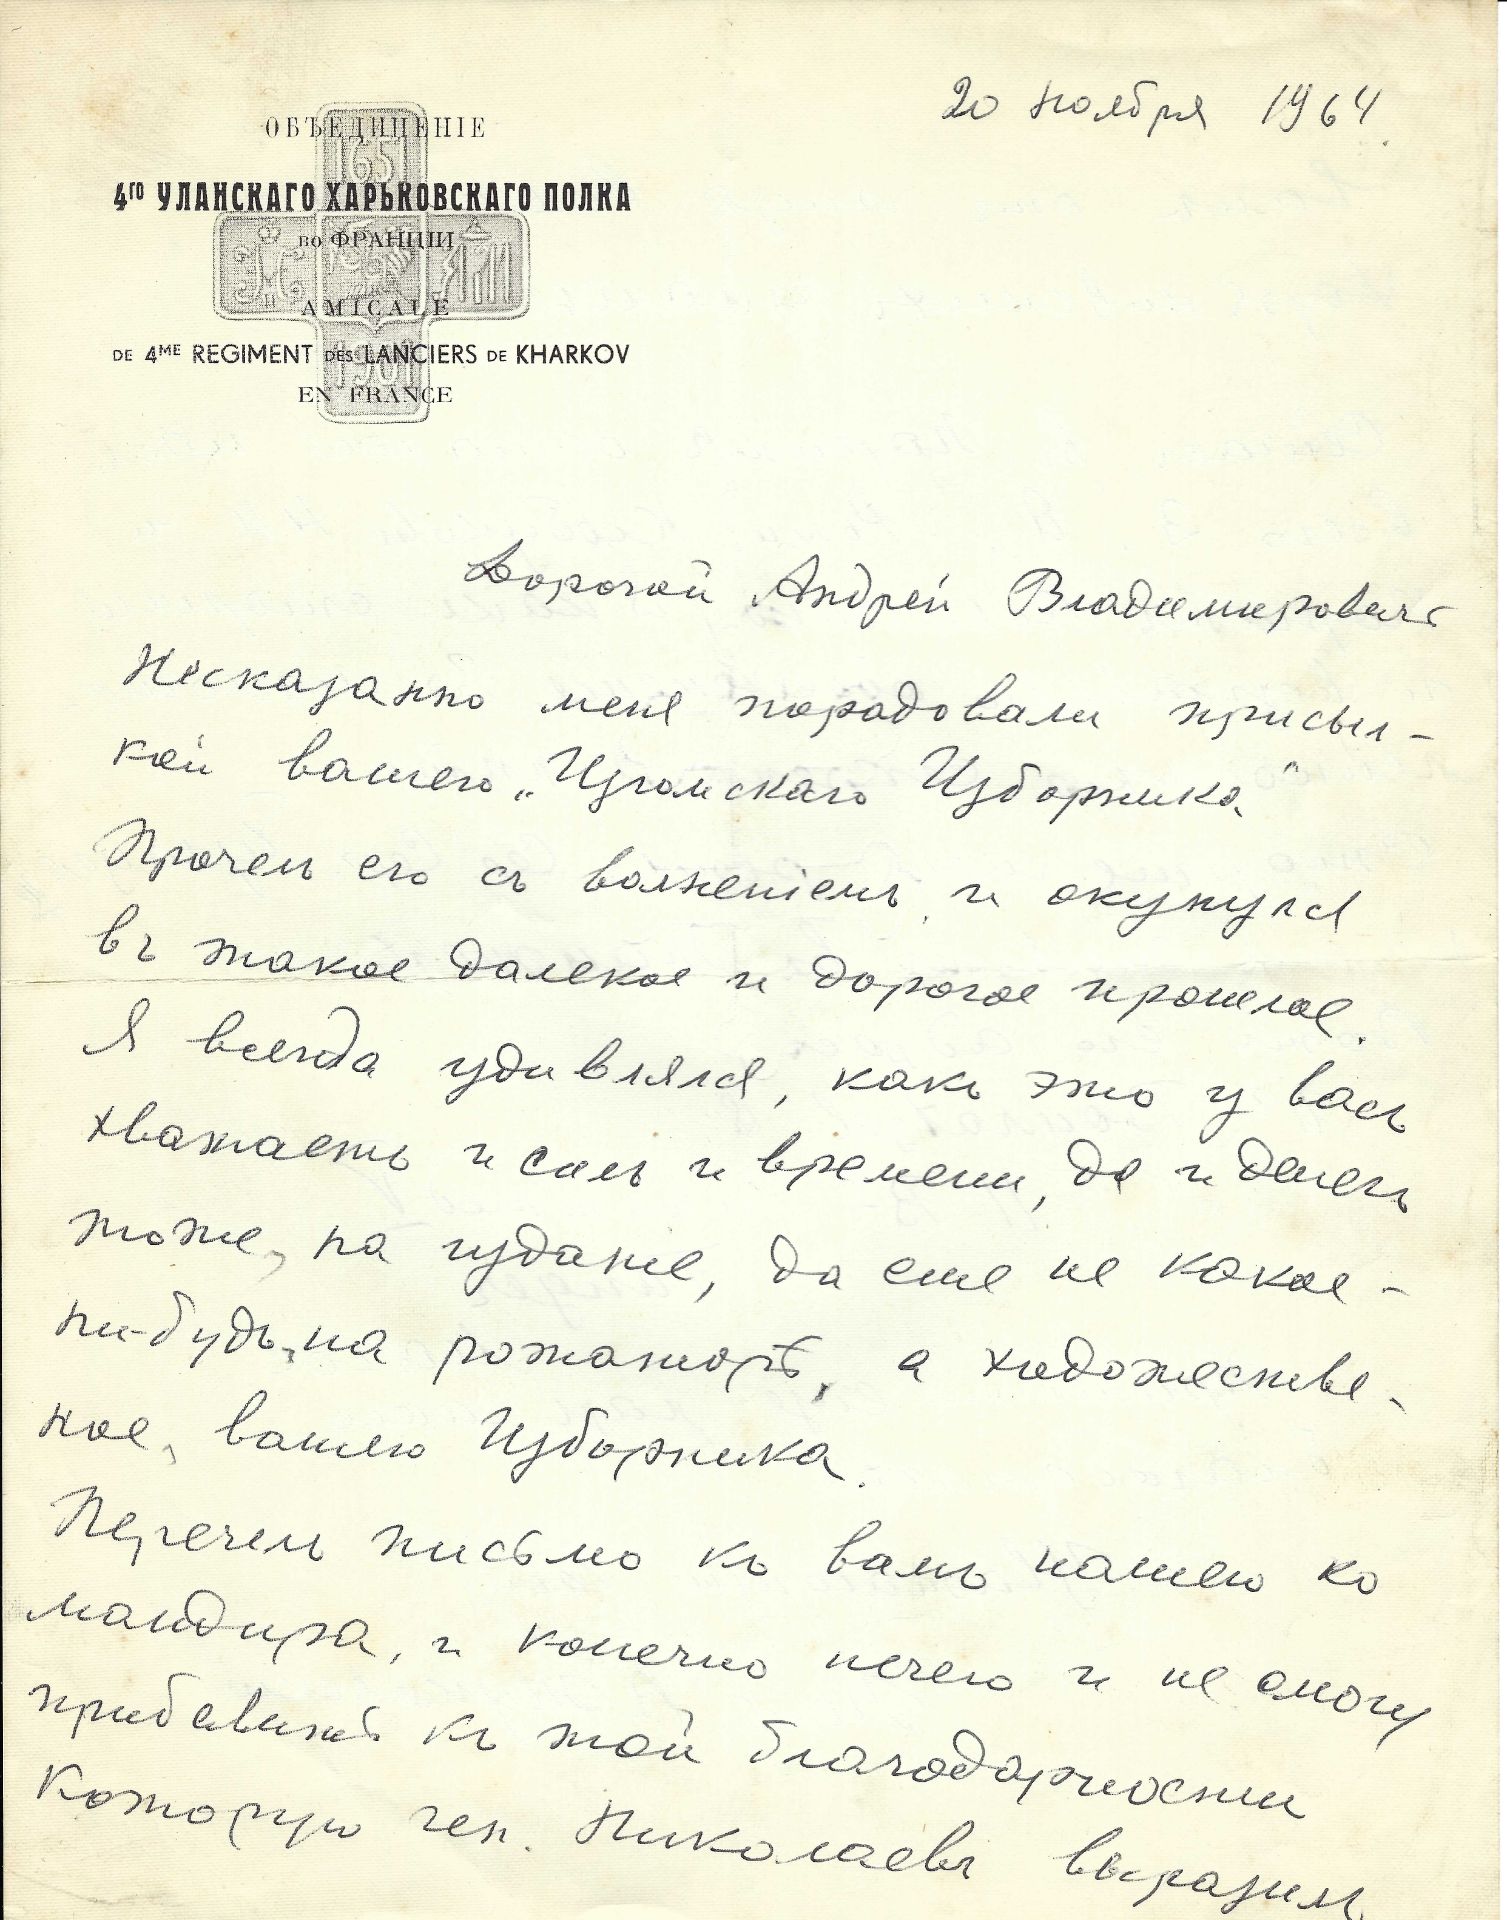 20 ноября 1964.
ОБЪЕДИНЕНІЕ
1651
4го УЛАНСКАГО ХАРЬКОВСКАГО ПОЛКА
во ФРАНЦІИ
AMICALE
DE 4ME REGIMENT DES LANCIERS DE KHARKOV
1901
EN FRANCE
Дорогой Андрей Владимировичъ
Несказанно меня порадовали присыл-
кой вашего „Изюмскаго Изборника"
Прочелъ его съ волненіемъ и окунулся
въ такое далекое и дорогое прошлое.
Я всегда удивлялся, какъ это у васъ
хватаетъ и силъ и времени, да и денегъ
тоже, на изданіе, да еще не какое-
ни-будь, на ротаторѣ, а художестве-
ное, вашего Изборника.
Перечелъ письмо къ вамъ нашего ко
мандира, и конечно нечего и не смогу
прибавить къ той благодарности
которую ген. Николаевъ выразилъ